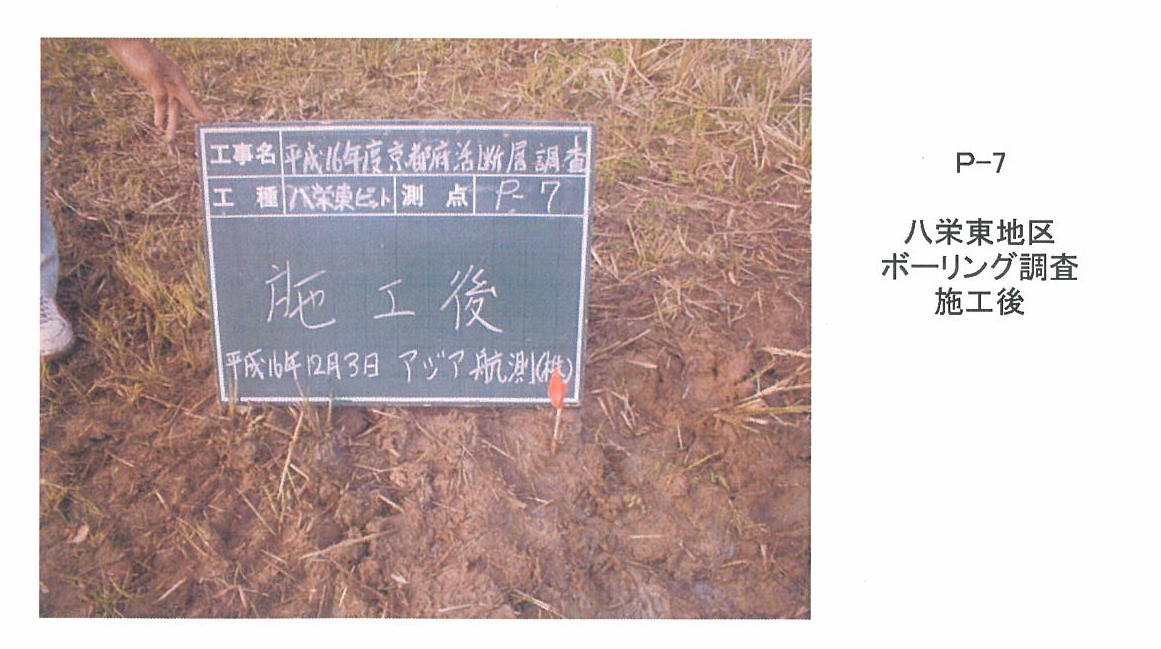 工事名 平成16年度京都府活断層調査
工種 八栄東ピット 測点 P-7
施工後
平成16年12月3日 アジア航測(株)
P-7
八栄東地区
ボーリング調査
施工後